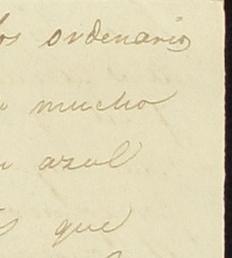 los ordenarios
mucho
azul
que